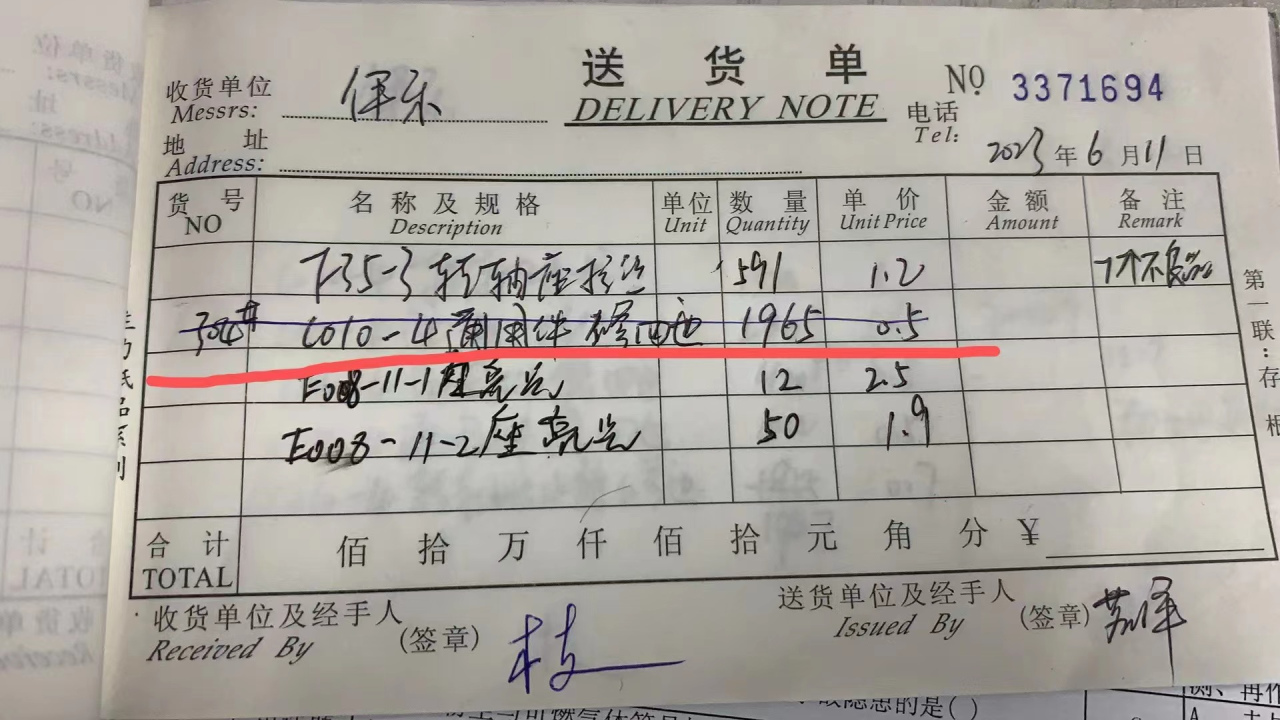 送货单
DELIVERY NOTE
NO 3371694
收货单位
Messrs: 伟乐
电话
Tel:
地址
Address:
2023年6月11日
货号 名称及规格 单位 数量 单价 金额 备注
NO Description Unit Quantity Unit Price Amount Remark
T35-3 转轴座拉丝 591 1.2 1个不良品
304# L010-4 1965 0.5
E008-11-1座亮光 12 2.5
E008-11-2座亮光 50 1.9
合计 佰拾万仟佰拾元角分 ¥
TOTAL
收货单位及经手人
Received By (签章)
送货单位及经手人
Issued By (签章)
第一联:存根